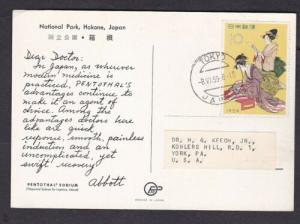 National Park, Hakone, Japan
国立公園・箱根
Dear Doctor:
In Japan, as wherever
modern medicine is
practiced, PENTOTHAL'S
advantages continue to
make it an agent of
choice. Among the
advantages doctors here
like are quick
response, smooth, painless
induction and an
uncomplicated, yet
swift recovery.
Abbott
PENTOTHAL® SODIUM
PRINTED IN JAPAN
TOKYO
JAPAN
日本郵便
10
1955
DR. H. G. KEECH, JR.,
KOHLERS HILL, R.D. 1,
YORK, PA.
U. S. A.